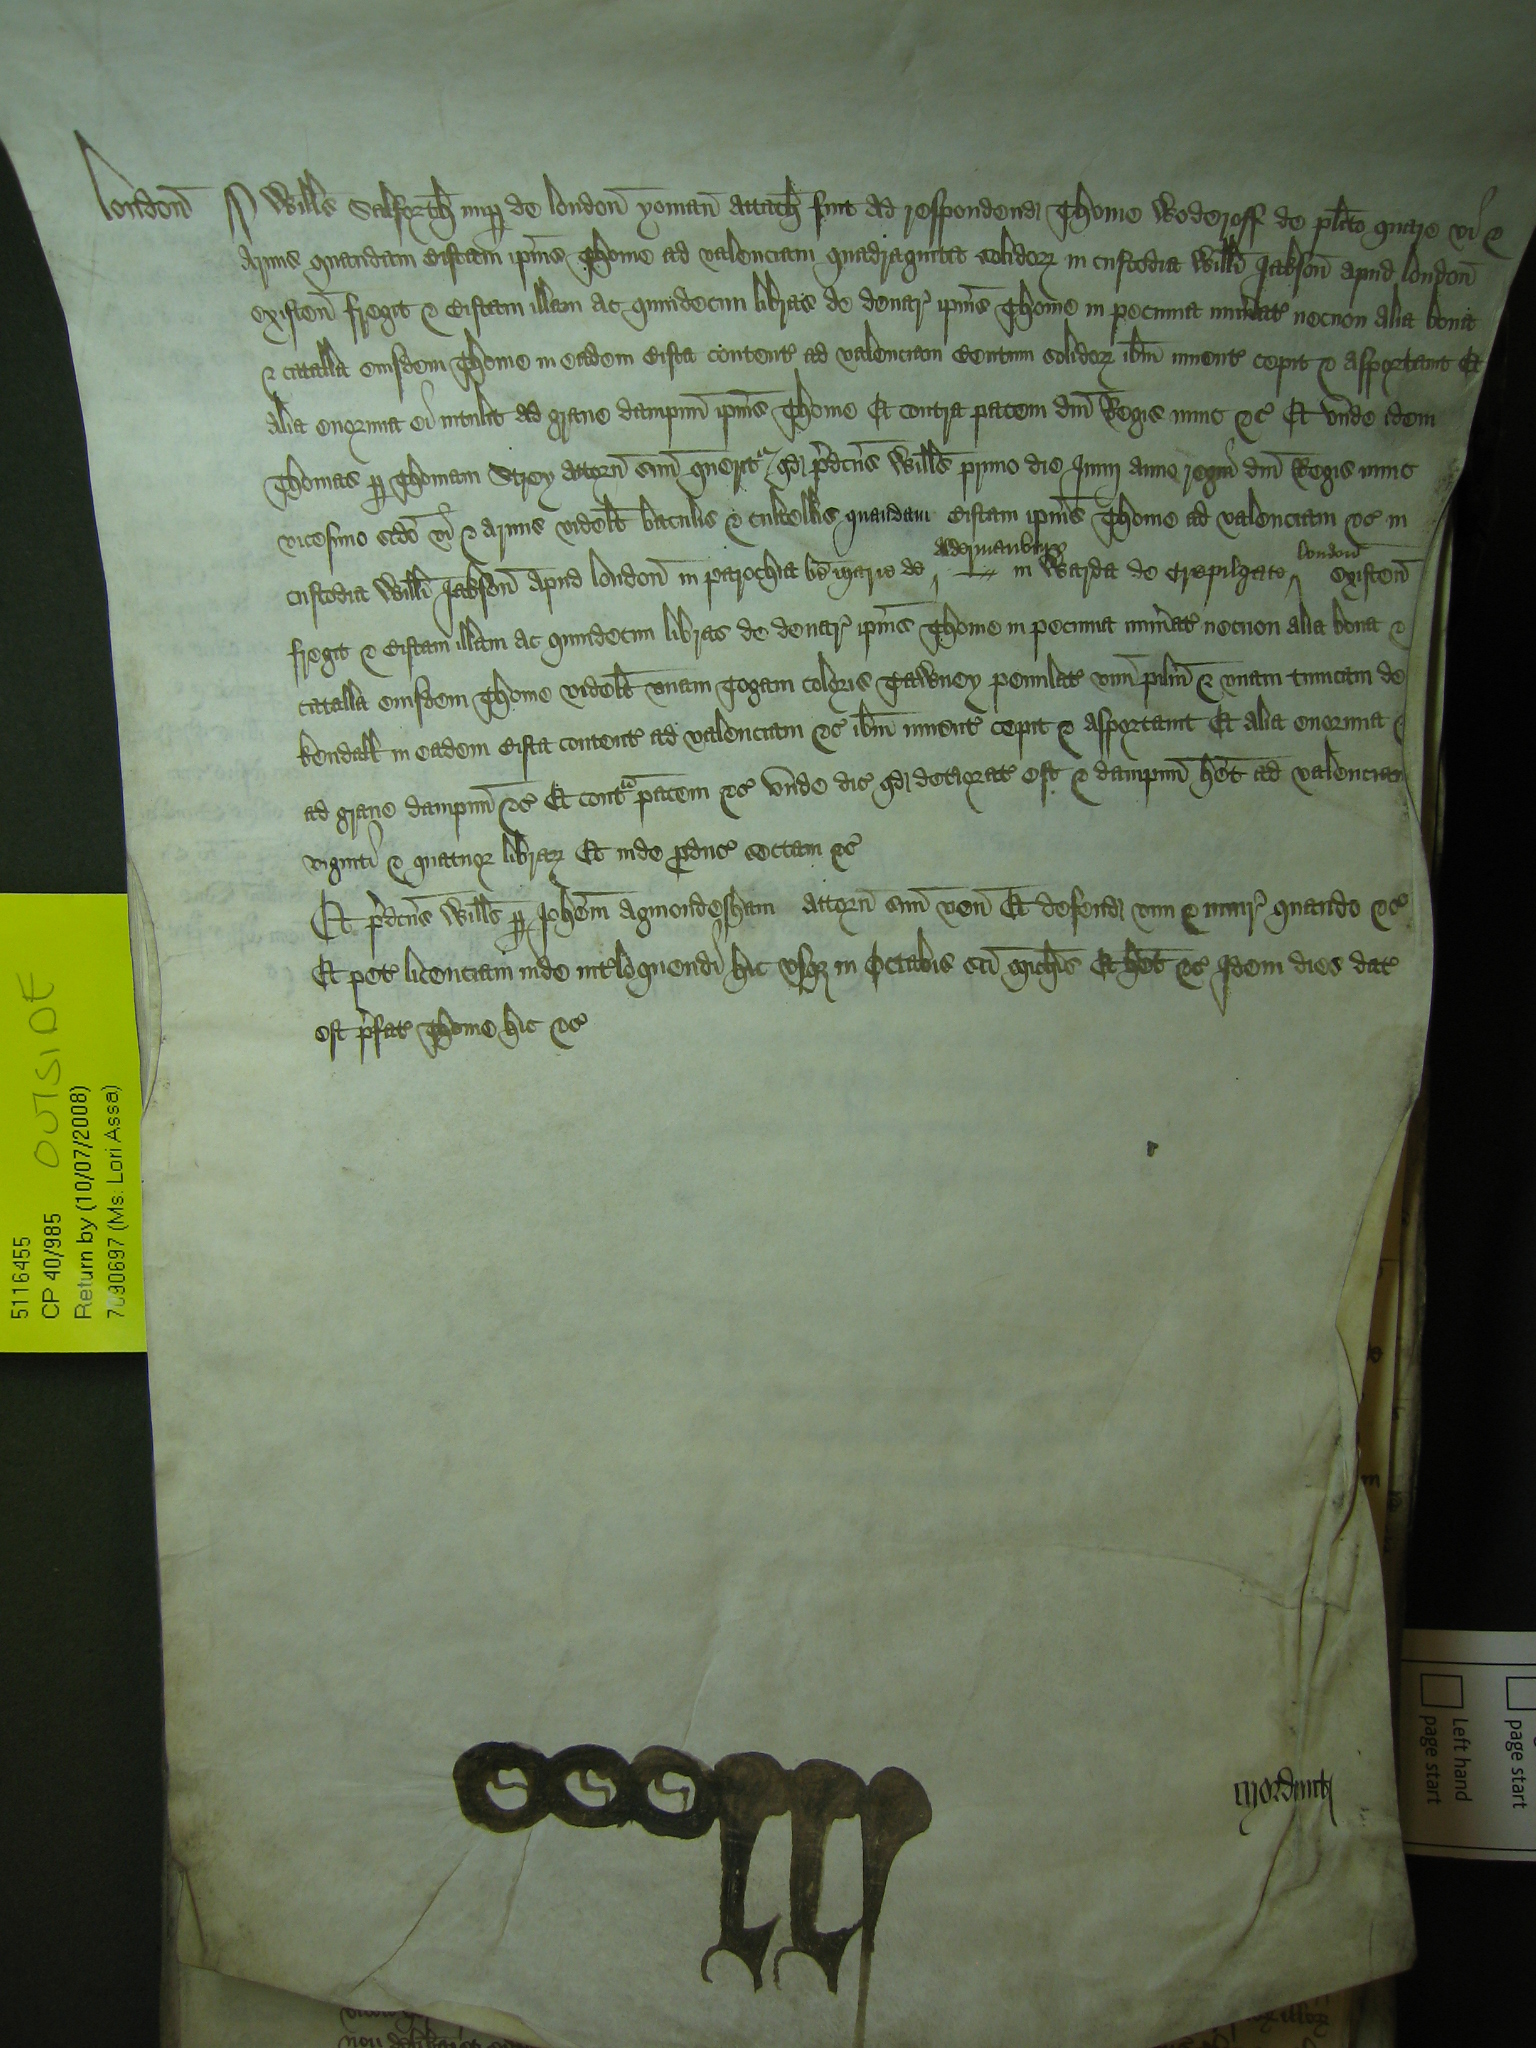 London ̄ Willͫs Salforth nup de London ̄ yoman ̄ attach fuit ad respondend Thome Woderoff de plito quare vi &
Armis quandam Cistam ipius Thome ad valenciam quadraginta solidoꝝ in custodia Willi Jakson ̄ apud London ̄
existen ̄ fregit & Cistam illam ac quindecim libras de denar ipius Thome in pecunia numerat necnon alia bona
& catalla eiusdem Thome in eadem Cista content ad valenciam Centum solidoꝝ ibm invent cepit & asportavit Et
alia enormia ei intulit Ad grave dampnu ipius Thome Et contra pacem dni Regis nunc &c Et unde idem
Thomas p Thomam Strey attorn suu querit qd pdcus Willus primo die Junii anno regni dni Regis nunc
vicesimo scdo vi & armis videlt baculis & cultellis quandam Cistam ipius Thome ad valenciam &c in
custodia Willi Jakson ̄ apud London ̄ in parochia be Marie de Aldermanbury in Warda de Crepilgate London ̄ existen ̄
fregit & Cistam illam ac quindecim libras de denar ipius Thome in pecunia numerat necnon alia bona &
catalla eiusdem Thome videlt unam Togam coloris Tawney penulat unu piliu & unam tunicam de
kendall in eadem Cista content ad valenciam &c ibm invent cepit & asportavit Et alia enormia &c
ad grave dampnu &c Et contra pacem &c unde dic qd deteriorat est & dampnu het ad valenciam
viginti & quatuor libraꝝ Et inde pduc sectam &c
Et pdcus Willus p Johem Agmondesham attorn suu ven Et defend vim & iniur quando &c
Et pet licenciam inde intloquendi hic usqꝫ in Octabis sci Michis Et het &c Idem dies dat
est pfat Thome hic &c
Mordaunt
5116455
CP 40/985 OUTSIDE
Return by (10/07/2008)
7090697 (Ms. Lori Assa)
Left hand
page start
page start